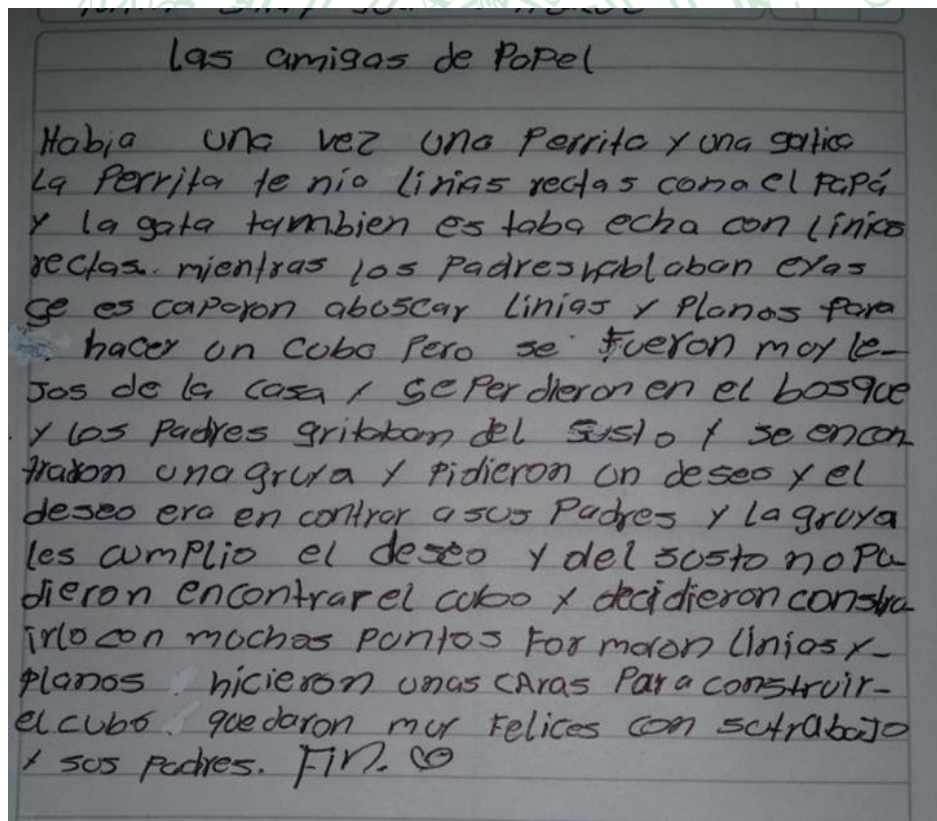 Las amigas de Papel
Habia una vez una Perrita y una gatica
La Perrita te nia linias rectas como el PaPá
y la gata tambien es taba echa con linias
rectas. mientras los Padres hablaban eyas
se es caparon abuscar linias y Planos para
hacer un cubo Pero se fueron muy le-
Jos de la casa y se Per dieron en el bosque
y los Padres gritaban del susto y se encon
traron una gruya y Pidieron un deseo y el
deseo era en contrar a sus Padres y la gruya
les cumPlio el deseo y del susto no Pu
dieron encontrar el cubo y decidieron constru
irlo con muchos Puntos For maron linias y-
Planos hicieron unas cAras Para construir-
el cubo. quedaron muy Felices con su trabaJo
y sus Padres. Fin.